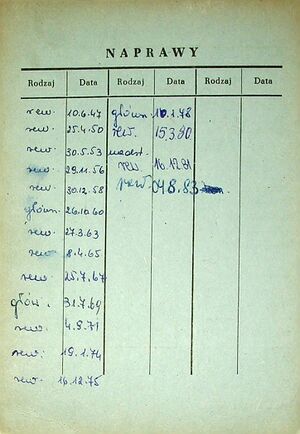 NAPRAWY
Rodzaj Data Rodzaj Data Rodzaj Data
rew. 10.6.47 główn. 10.1.78
rew. 25.4.50 rew. 15.3.80
rew. 30.5.53
rew. 29.11.56 rew. 16.12.81
rew. 30.12.58 rew.
główn. 26.10.60
rew. 27.3.63
rew. 8.4.65
rew. 25.7.67
głów. 31.7.69
rew. 4.9.71
rew. 19.1.74
rew. 16.12.75